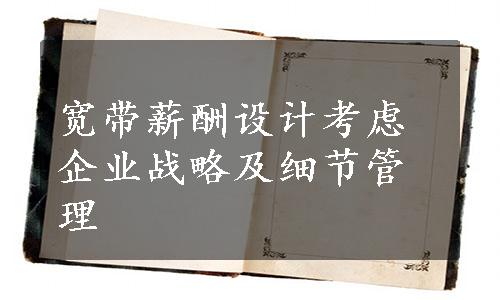 宽带薪酬设计考虑
企业战略及细节管
理